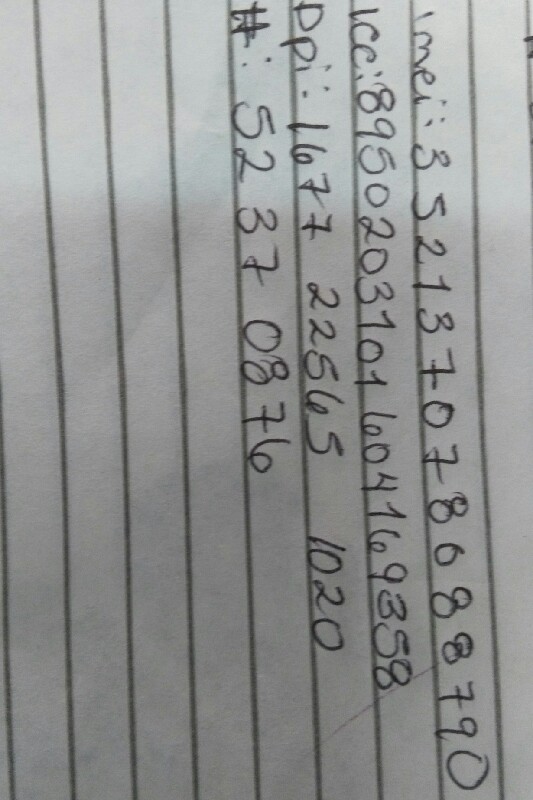 imei: 352137078688790
icc: 8950203101604169358
Dpi: 1677 22565 1020
#: 5237 0876